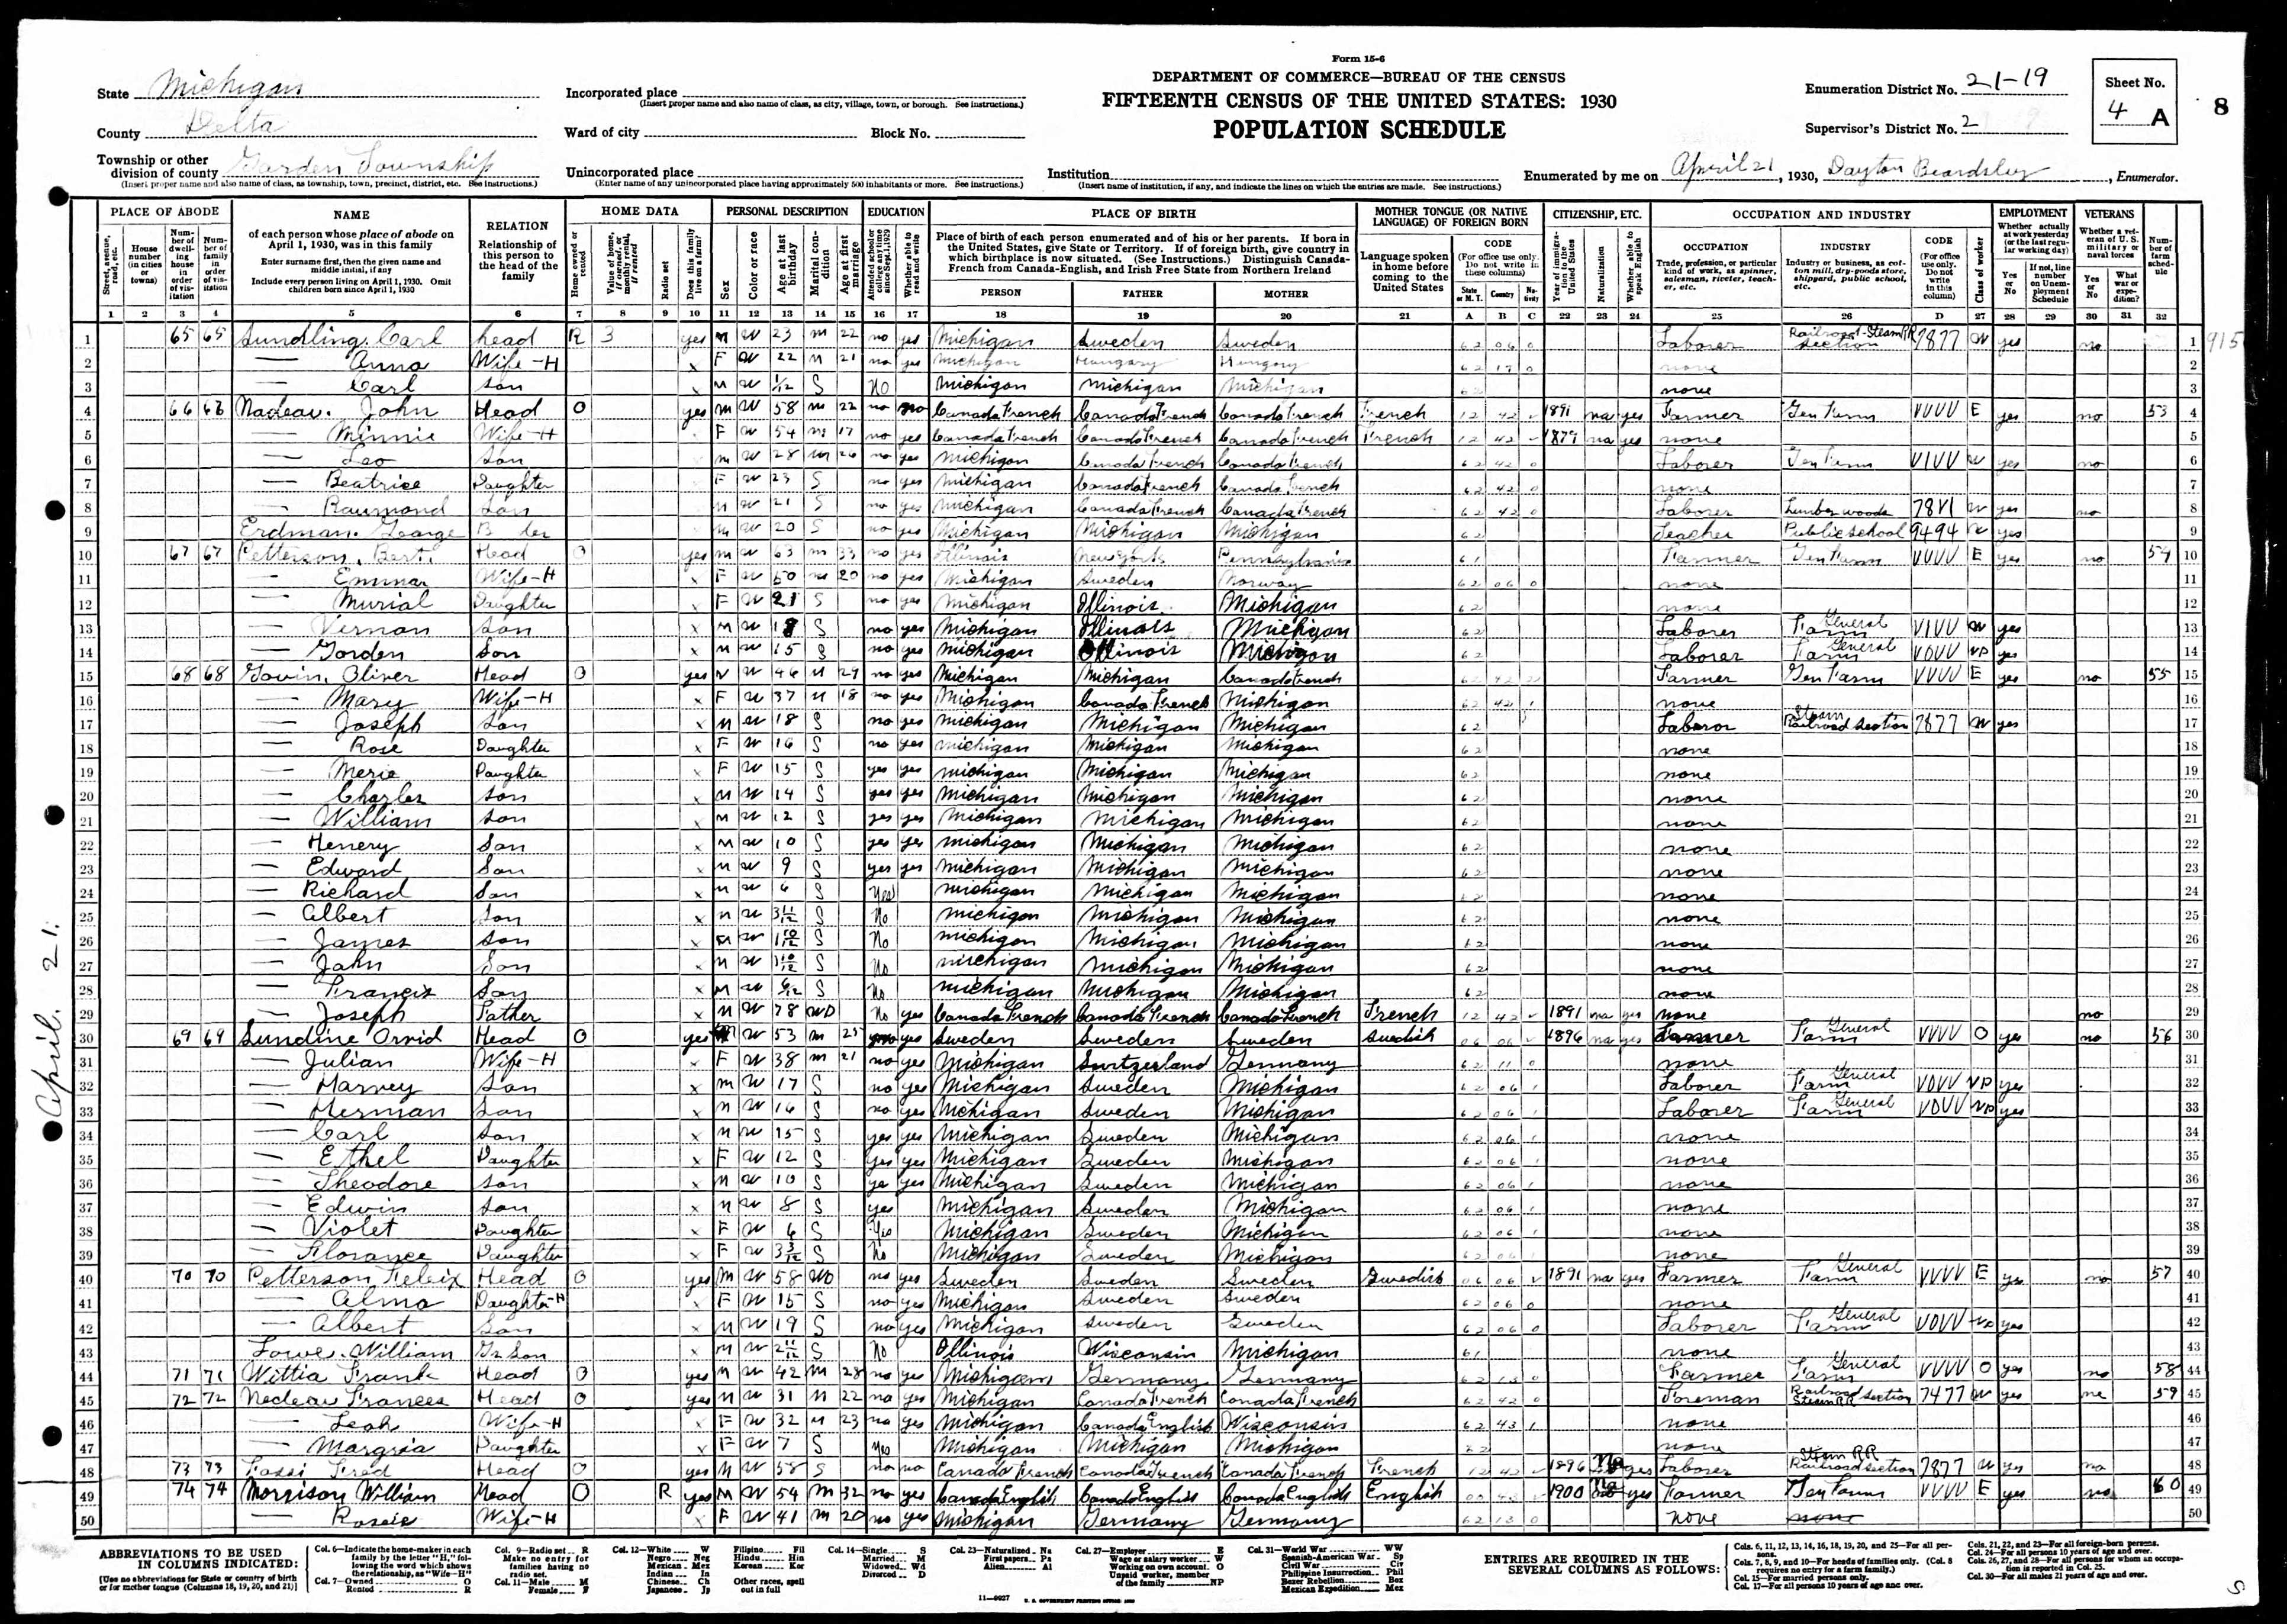 Form 15-6
DEPARTMENT OF COMMERCE—BUREAU OF THE CENSUS
FIFTEENTH CENSUS OF THE UNITED STATES: 1930
POPULATION SCHEDULE
State Michigan
County Delta
Township or other division of county Garden Township
(Insert proper name and also name of class, as township, town, precinct, district, etc. See instructions.)
Incorporated place
(Insert proper name and also name of class, as city, village, town, or borough. See instructions.)
Ward of city Block No.
Unincorporated place
(Enter name of any unincorporated place having approximately 500 inhabitants or more. See instructions.)
Institution
(Insert name of institution, if any, and indicate the lines on which the entries are made. See instructions.)
Enumeration District No. 21-19
Supervisor's District No. 2
Sheet No. 4 A
8
Enumerated by me on April 21, 1930, Dayton Beardsley, Enumerator.
PLACE OF ABODE
NAME of each person whose place of abode on April 1, 1930, was in this family
Enter surname first, then the given name and middle initial, if any
Include every person living on April 1, 1930. Omit children born since April 1, 1930
RELATION Relationship of this person to the head of the family
HOME DATA
PERSONAL DESCRIPTION
EDUCATION
PLACE OF BIRTH
Place of birth of each person enumerated and of his or her parents. If born in the United States, give State or Territory. If of foreign birth, give country in which birthplace is now situated. (See Instructions.) Distinguish Canada-French from Canada-English, and Irish Free State from Northern Ireland
PERSON FATHER MOTHER
MOTHER TONGUE (OR NATIVE LANGUAGE) OF FOREIGN BORN
Language spoken in home before coming to the United States
CITIZENSHIP, ETC.
OCCUPATION AND INDUSTRY
EMPLOYMENT
VETERANS
1 65 65 Sundling, Carl head R 3 yes M W 23 M 22 no yes Michigan Sweden Sweden 62 06 0 Laborer Railroad-Steam RR section 7877 W yes no 1
2 — Anna Wife-H x F W 22 M 21 no yes Michigan Hungary Hungary 62 17 0 none 2
3 — Carl son x M W 1/12 S No Michigan Michigan Michigan 62 none 3
4 66 66 Nadeau, John Head O yes M W 58 M 22 no no Canada French Canada French Canada French French 12 42 1891 na yes Farmer Gen Farm VVVV E yes no 53 4
5 — Minnie Wife-H F W 54 M 17 no yes Canada French Canada French Canada French French 12 42 1879 na yes none 5
6 — Leo Son M W 28 M 26 no yes Michigan Canada French Canada French 62 42 0 Laborer Gen Farm VIVV W yes no 6
7 — Beatrice Daughter F W 23 S no yes Michigan Canada French Canada French 62 42 0 none 7
8 — Raumond Son M W 21 S no yes Michigan Canada French Canada French 62 42 0 Laborer Lumber woods 78V1 W yes no 8
9 Erdman, George M W 20 S no yes Michigan Michigan Michigan 62 Teacher Public School 9494 W yes 9
10 67 67 Petterson, Bert. Head O yes M W 63 M 33 no yes Illinois New York Pennsylvania 61 Farmer Gen Farm VVVV E yes no 54 10
11 — Emma Wife-H x F W 50 M 20 no yes Michigan Sweden Norway 62 06 0 none 11
12 — Murial Daughter x F W 21 S no yes Michigan Illinois Michigan 62 none 12
13 — Vernon Son x M W 18 S no yes Michigan Illinois Michigan 62 Laborer General Farm VIVV W yes 13
14 — Gorden Son x M W 15 S no yes Michigan Illinois Michigan 62 Laborer General Farm VOVV NP yes 14
15 68 68 Govin, Oliver Head O yes M W 46 M 29 no yes Michigan Michigan Canada French 62 42 Farmer Gen Farm VVVV E yes no 55 15
16 — Mary Wife-H x F W 37 M 18 no yes Michigan Canada French Michigan 62 42 1 none 16
17 — Joseph Son x M W 18 S no yes Michigan Michigan Michigan 62 Laboror Steam Railroad Section 7877 W yes 17
18 — Rose Daughter x F W 16 S no yes Michigan Michigan Michigan 62 none 18
19 — Merie Daughter x F W 15 S yes yes Michigan Michigan Michigan 62 none 19
20 — Charles Son x M W 14 S yes yes Michigan Michigan Michigan 62 none 20
21 — William Son x M W 12 S yes yes Michigan Michigan Michigan 62 none 21
22 — Henery Son x M W 10 S yes yes Michigan Michigan Michigan 62 none 22
23 — Edward Son x M W 9 S yes yes Michigan Michigan Michigan 62 none 23
24 — Richard Son x M W 6 S Yes Michigan Michigan Michigan 62 none 24
25 — Albert Son x M W 3 11/12 S No Michigan Michigan Michigan 62 none 25
26 — James Son x M W 1 10/12 S No Michigan Michigan Michigan 62 none 26
27 — John Son x M W 1 10/12 S No Michigan Michigan Michigan 62 none 27
28 — Francis Son x M W 6/12 S No Michigan Michigan Michigan 62 none 28
29 — Joseph Father x M W 78 WD No yes Canada French Canada French Canada French French 12 42 1891 na yes none no 29
30 69 69 Sundine Orvid Head O yes M W 53 M 25 yes Sweden Sweden Sweden Swedish 06 06 1896 na yes Farmer General Farm VVVV O yes no 56 30
31 — Julian Wife-H x F W 38 M 21 no yes Michigan Switzerland Germany 62 11 0 none 31
32 — Harvey Son x M W 17 S no yes Michigan Sweden Michigan 62 06 1 Laborer General Farm VOVV NP yes 32
33 — Herman Son x M W 16 S no yes Michigan Sweden Michigan 62 06 1 Laborer General Farm VOVV NP yes 33
34 — Carl Son x M W 15 S yes yes Michigan Sweden Michigan 62 06 1 none 34
35 — Ethel Daughter x F W 12 S yes yes Michigan Sweden Michigan 62 06 1 none 35
36 — Theodore Son x M W 10 S ye yes Michigan Sweden Michigan 62 06 1 none 36
37 — Edwin Son x M W 8 S yes Michigan Sweden Michigan 62 06 1 none 37
38 — Violet Daughter x F W 6 S Yes Michigan Sweden Michigan 62 06 1 none 38
39 — Florance Daughter x F W 3 3/12 S No Michigan Sweden Michigan 62 06 1 none 39
40 70 70 Petterson Feleix Head O yes M W 58 WD no yes Sweden Sweden Sweden Swedish 06 06 V 1891 na yes Farmer General Farm VVVV E yes no 57 40
41 — Alma Daughter-H x F W 15 S no yes Michigan Sweden Sweden 62 06 0 none 41
42 — Albert Son x M W 19 S no yes Michigan Sweden Sweden 62 06 0 Laborer General Farm VOVV NP yes 42
43 Lowe, William Gr Son x M W 2 11/12 S No Illinois Wisconsin Michigan 61 none 43
44 71 71 Wittia Frank Head O yes M W 42 M 28 no yes Michigan Germany Germany 62 13 0 Farmer General Farm VVVV O yes no 58 44
45 72 72 Nedeau Frances Head O yes M W 31 M 22 no yes Michigan Canada French Canada French 62 42 0 Foreman Railroad Steam RR section 7477 W yes no 59 45
46 — Leah Wife-H x F W 32 M 23 no yes Michigan Canada English Wisconsin 62 43 1 none 46
47 — Margria Daughter F W 7 S Yes Michigan Michigan Michigan none 47
48 73 73 Fred Head O yes M W 58 S no no Canada French Canada French Canada French French 12 42 1896 Na yes Laborer Steam RR Railroad section 7877 W yes no 48
49 74 74 Morrison William Head O R yes M W 54 M 32 no yes Canada English Canada English Canada English English 1900 Na yes Farmer Gen Farm VVVV E yes no 60 49
50 — Roseie Wife-H x F W 41 M 20 no yes Michigan Germany Germany 62 13 0 none none 50
April. 21.
915
ABBREVIATIONS TO BE USED IN COLUMNS INDICATED:
[Use no abbreviations for State or country of birth or for mother tongue (Columns 18, 19, 20, and 21)]
Col. 6—Indicate the home-maker in each family by the letter "H," following the word which shows the relationship, as "Wife—H"
Col. 7—Owned O Rented R
Col. 9—Radio set R Make no entry for families having no radio set.
Col. 11—Male M Female F
Col. 12—White W Negro Neg Mexican Mex Indian In Chinese Ch Japanese Jp Filipino Fil Hindu Hin Korean Kor Other races, spell out in full
Col. 14—Single S Married M Widowed Wd Divorced D
Col. 23—Naturalized Na First papers Pa Alien Al
Col. 27—Employer E Wage or salary worker W Working on own account O Unpaid worker, member of the family NP
Col. 31—World War WW Spanish-American War Sp Civil War Civ Philippine Insurrection Phil Boxer Rebellion Box Mexican Expedition Mex
ENTRIES ARE REQUIRED IN THE SEVERAL COLUMNS AS FOLLOWS:
Cols. 6, 11, 12, 13, 14, 16, 18, 19, 20, and 25—For all persons.
Cols. 7, 8, 9, and 10—For heads of families only. (Col. 8 requires no entry for a farm family.)
Col. 15—For married persons only.
Col. 17—For all persons 10 years of age and over.
Cols. 21, 22, and 23—For all foreign-born persons.
Col. 24—For all persons 10 years of age and over.
Cols. 26, 27, and 28—For all persons for whom an occupation is reported in Col. 25.
Col. 30—For all males 21 years of age and over.
11—9927 U. S. GOVERNMENT PRINTING OFFICE